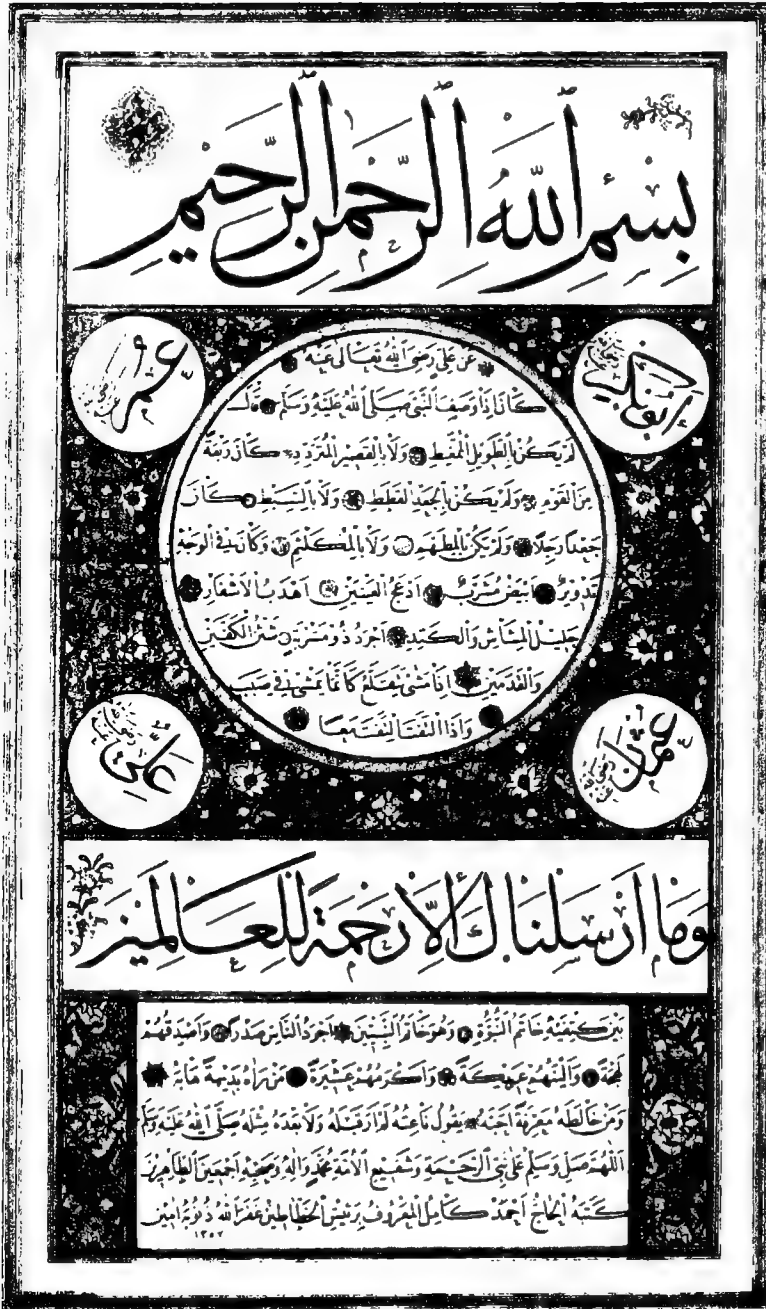 بِسْمِ اللهِ الرَّحْمٰنِ الرَّحِيمِ
أبو بكر رضي الله عنه
عمر رضي الله عنه
عَنْ عَلِيٍّ رَضِيَ اللهُ تَعَالَى عَنْهُ
كَانَ إِذَا وَصَفَ النَّبِيَّ صَلَّى اللهُ عَلَيْهِ وَسَلَّمَ قَالَ
لَمْ يَكُنْ بِالطَّوِيلِ الْمُمَّغِطِ وَلَا بِالْقَصِيرِ الْمُتَرَدِّدِ كَانَ رَبْعَةً
مِنَ الْقَوْمِ وَلَمْ يَكُنْ بِالْجَعْدِ الْقَطَطِ وَلَا بِالسَّبْطِ كَانَ
جَعْدًا رَجِلًا وَلَمْ يَكُنْ بِالْمُطَهَّمِ وَلَا بِالْمُكَلْثَمِ وَكَانَ فِي الْوَجْهِ
تَدْوِيرٌ أَبْيَضُ مُشْرَبٌ أَدْعَجُ الْعَيْنَيْنِ أَهْدَبُ الْأَشْفَارِ
جَلِيلُ الْمُشَاشِ وَالْكَتَدِ أَجْرَدُ ذُو مَسْرُبَةٍ شَثْنُ الْكَفَّيْنِ
وَالْقَدَمَيْنِ إِذَا مَشَى يَتَقَلَّعُ كَأَنَّمَا يَمْشِي فِي صَبَبٍ
وَإِذَا الْتَفَتَ الْتَفَتَ مَعًا
عثمان رضي الله عنه
علي رضي الله عنه
وَمَا أَرْسَلْنَاكَ إِلَّا رَحْمَةً لِلْعَالَمِينَ
بَيْنَ كَتِفَيْهِ خَاتَمُ النُّبُوَّةِ وَهُوَ خَاتَمُ النَّبِيِّينَ أَجْوَدُ النَّاسِ صَدْرًا وَأَصْدَقُهُمْ
لَهْجَةً وَأَلْيَنُهُمْ عَرِيكَةً وَأَكْرَمُهُمْ عَشِيرَةً مَنْ رَآهُ بَدِيهَةً هَابَهُ
وَمَنْ خَالَطَهُ مَعْرِفَةً أَحَبَّهُ يَقُولُ نَاعِتُهُ لَمْ أَرَ قَبْلَهُ وَلَا بَعْدَهُ مِثْلَهُ صَلَّى اللهُ عَلَيْهِ وَسَلَّمَ
اللّٰهُمَّ صَلِّ وَسَلِّمْ عَلَى نَبِيِّ الرَّحْمَةِ وَشَفِيعِ الْأُمَّةِ مُحَمَّدٍ وَآلِهِ وَصَحْبِهِ أَجْمَعِينَ الطَّاهِرِينَ
كَتَبَهُ الْحَاجُّ أَحْمَدُ كَامِلُ الْمَعْرُوفُ بِرَئِيسِ الْخَطَّاطِينَ غَفَرَ اللهُ ذُنُوبَهُ آمِين
١٣٥٢